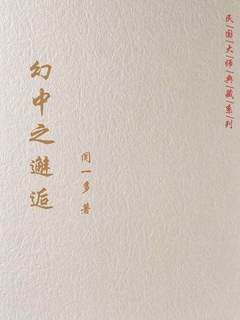 民国大师典藏系列
幻中之邂逅
闻一多 著